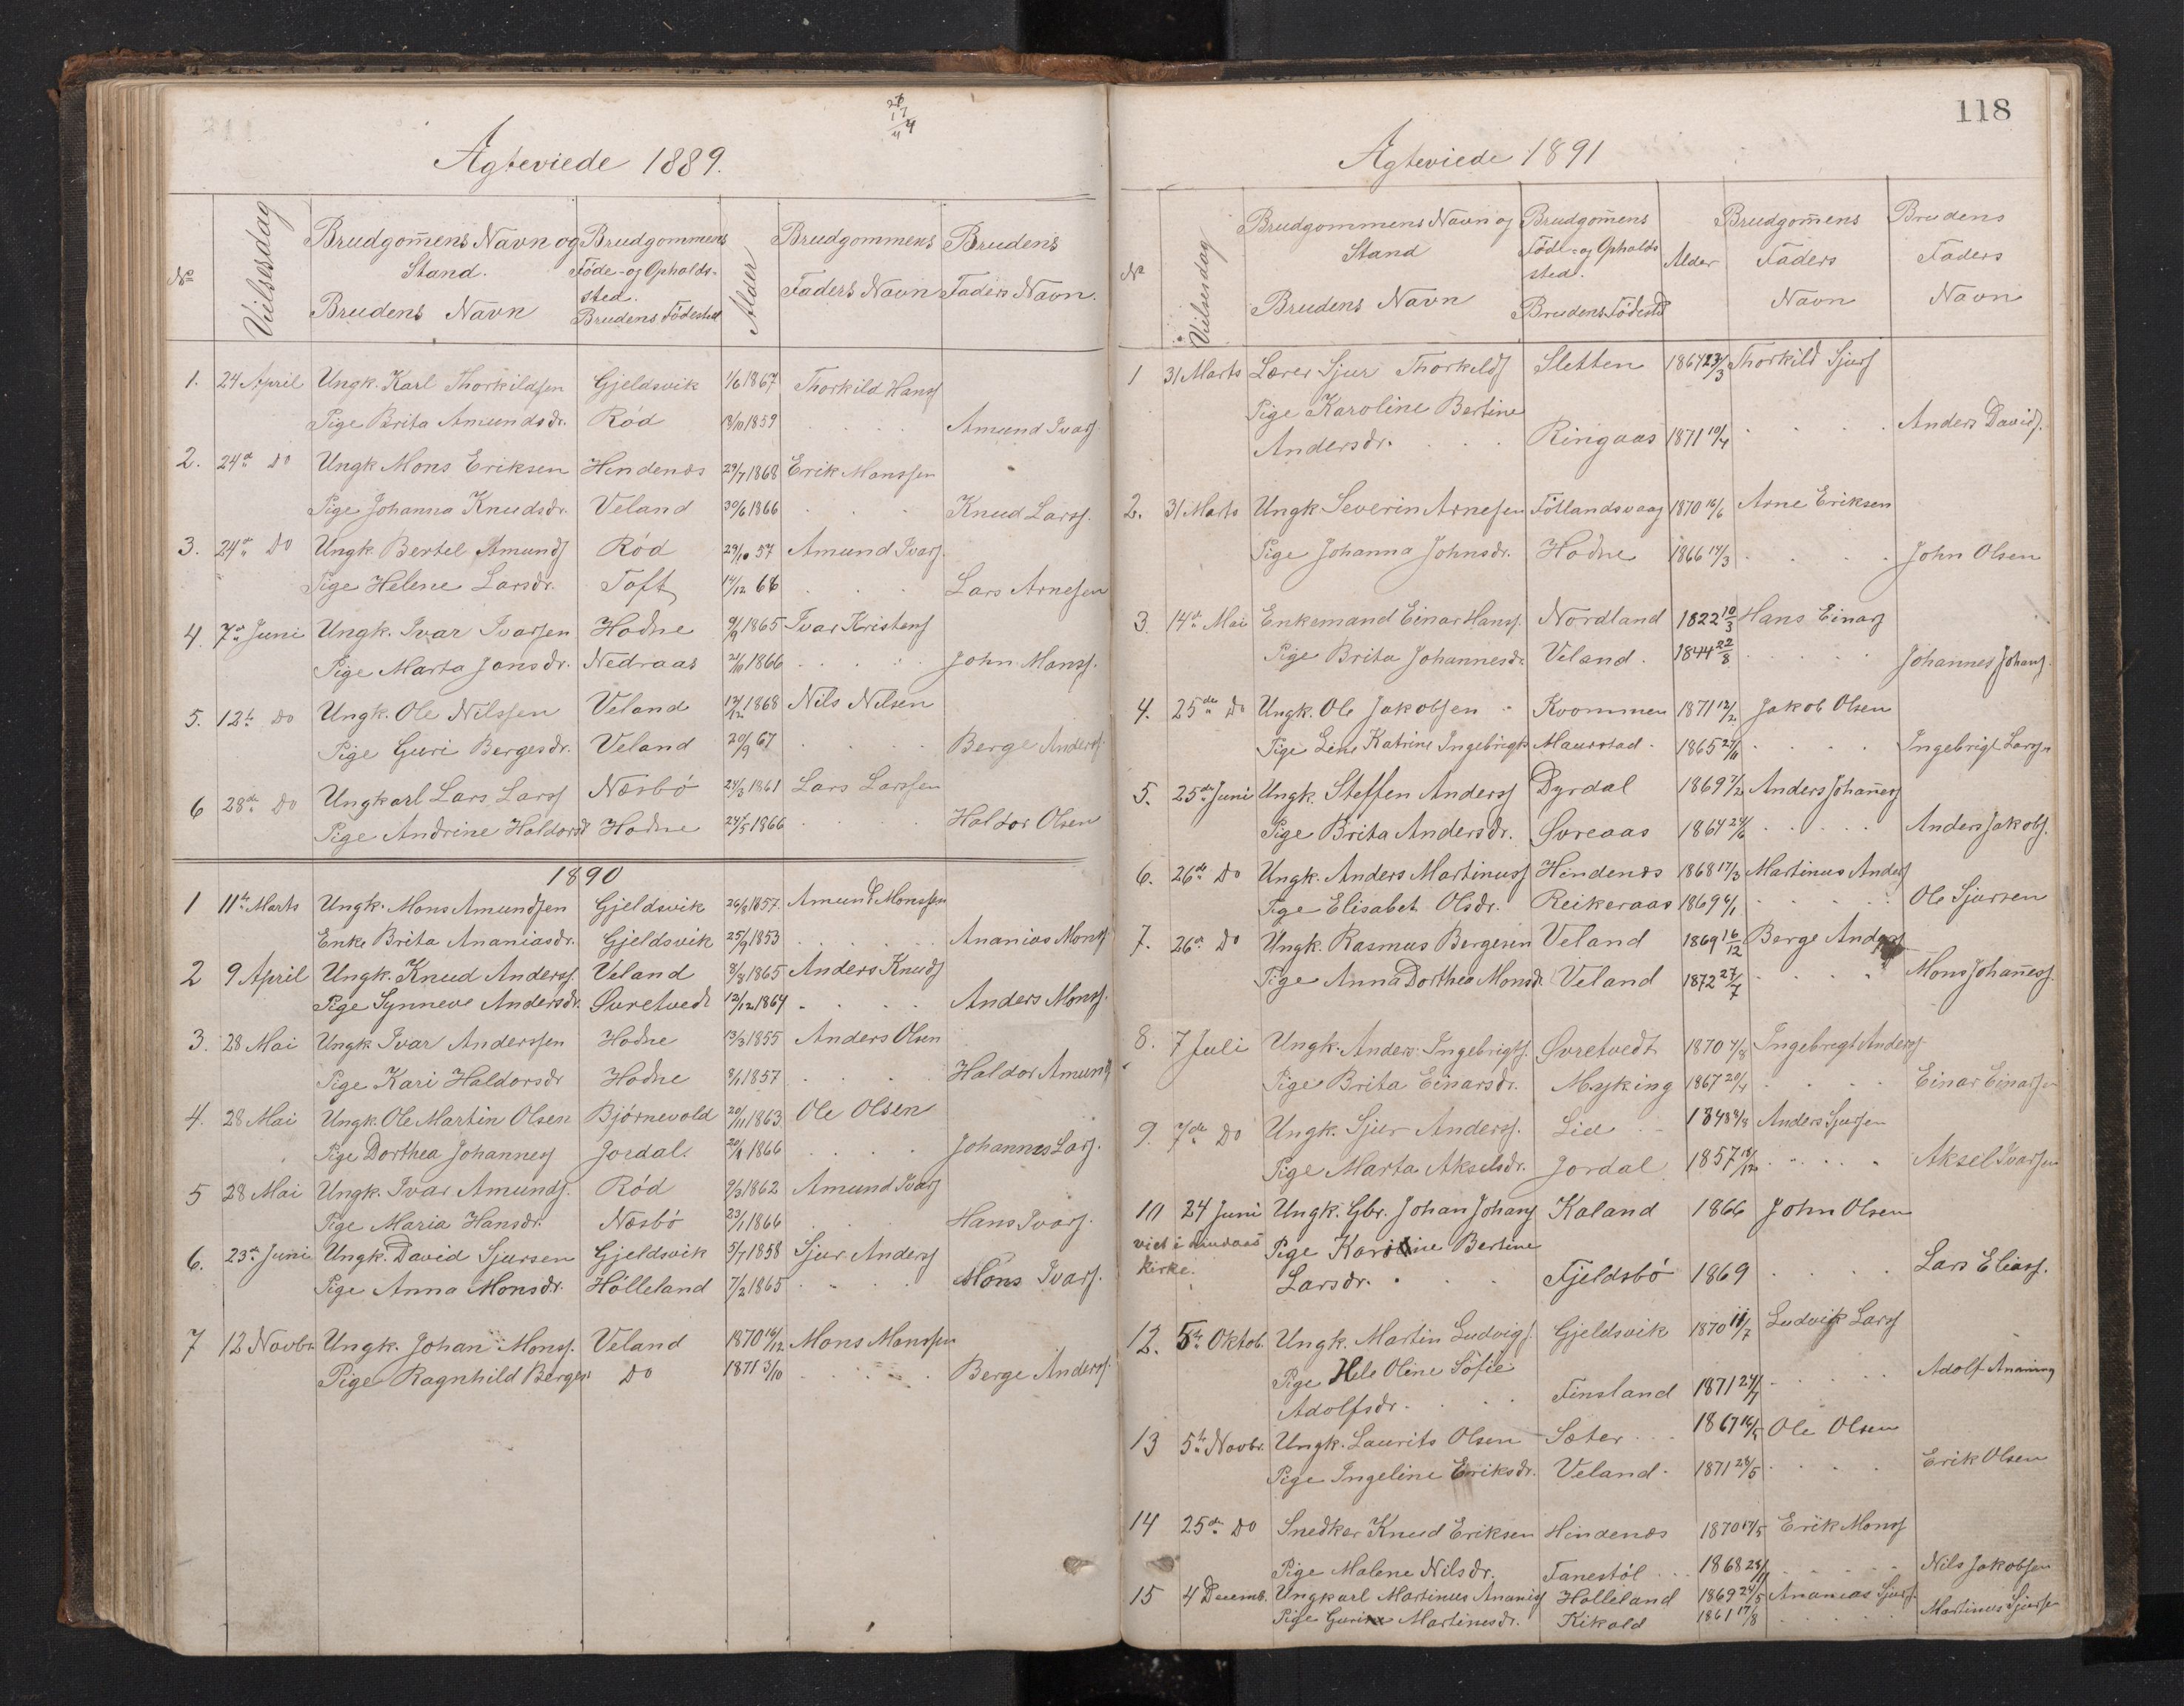 Agteviede 1889.
No
Vielsesdag
Brudgom̄ens Navn og
Stand.
Brudens Navn
Brudgommens
Føde- og Opholds-
sted.
Brudens Fødested
Alder
Brudgommens
Faders Navn
Brudens
Faders Navn.
1. 24 April Ungk. Karl Thorkildsen Gjeldsvik 1/6 1867 Thorkild Hanss
Pige Brita Amundsdr. Rød 13/10 1859 . . . . Amund Ivars
2. 24de Do Ungk Mons Eriksen Hindenes 29/7 1868 Erik Monssen
Pige Johanna Knudsdr. Veland 30/6 1866 . . . Knud Larss.
3. 24de Do Ungk. Bertel Amunds Rød 29/10 57 Amund Ivars.
Pige Helene Larsdr. Toft 14/12 66 . . . Lars Arnesen
4. 7de Juni Ungk. Ivar Ivarsen Hodne 9/9 1865 Ivar Kristens
Pige Marta Jonsdr. Nedraas 21/11 1866 . . . . John Monss.
5. 12te Do Ungk. Ole Nilssen Veland 14/12 1868 Nils Nilsen
Pige Guri Bergesdr. Veland 20/9 67 . . . . Berge Anderss.
6 28de Do Ungkarl Lars Larss Næsbø 24/3 1861 Lars Larssen
Pige Andrine Haldorsd Hodne 24/5 1866 . . . . Haldor Olsen
1890
1 11te Marts Ungk. Mons Amundsen Gjeldsvik 26/8 1857. Amund Monssen
Enke Brita Ananiasdr. Gjeldsvik 25/9 1853 . . . . Ananias Monss
2 9 April Ungk. Knud Anderss. Veland 8/8 1865 Anders Knuds
Pige Synneve Andersdr. Øvretvedt 12/12 1864 . . . . Anders Monss.
3. 28 Mai Ungk Ivar Anderssen Hodne 13/3 1855 Anders Olsen
Pige Kari Haldorsdr Hodne 8/1 1857 . . . . Haldor Amunds
4. 28 Mai Ungk. Ole Martin Olsen Bjørnevold 20/11 1863 Ole Olsen
Pige Dorthea Johanness Jordal. 20/1 1866 . . . . Johannes Lars.
5 28 Mai Ungk. Ivar Amunds. Rød 9/3 1862 Amund Ivars
Pige Maria Hansdr. Næsbø 23/1 1866 . . . Hans Ivars.
6. 23de Juni Ungk. David Sjursen Gjeldsvik 5/7 1858 Sjur Anders
Pige Anna Monsdr. Hølleland 7/2 1865 . . . . Mons Ivars.
7 12 Novbr. Ungk. Johan Monss. Veland 1870 16/12 Mons Monssen
Pige Ragnhild Berges Do 1871 3/10 . . . . Berge Anderss.
118
Agteviede 1891
No
Vielsesdag
Brudgommens Navn og
Stand
Brudens Navn
Brudgom̄ens
Føde- og Opholds
sted.
Brudens Fødested
Alder
Brudgom̄ens
Faders
Navn
Brudens
Faders
Navn
1 31 Marts Lærer Sjur Thorkilds Sletten 1864 23/3 Thorkild Sjurs
Pige Karoline Bertine
Andersdr. . . . Ringaas 1871 10/4 . . . . Anders Davids.
2. 31 Marts Ungk. Severin Arnesen Føtlandsvaag 1870 16/6 Arne Eriksen
Pige Johanna Johnsdr. Hodne 1866 14/3 . . . . John Olsen
3. 14de Mai Enkemand Einar Hanss. Nordland 1822 10/3 Hans Einars
Pige Brita Johannesdr. Veland. 1844 22/8 . . . . Johannes Johans.
4. 25de Do Ungk. Ole Jakobsen Kvommen 1871 12/2 Jakob Olsen
Pige Line Katrine Ingebrigts Maurstad. 1865 27/11 . . . . Ingebrigt Larsen
5. 25de Juni Ungk. Steffen Anderss Dyrdal 1869 7/12 Anders Johan̄ess
Pige Brita Andersdr. Øvreaas 1864 24/6 . . . . Anders Jakobs.
6. 26de Do Ungk. Anders Martinuss Hindenes 1868 17/3 Martinus Anders
Pige Elisabet Olsdr. Reikeraas 1869 6/1 . . . . Ole Sjursen
7. 26de Do Ungk. Rasmus Bergesen Veland 1869 16/12 Berge Anderss
Pige Anna Dorthea Monsdr. Veland 1872 27/7 . . . . Mons Johan̄ess.
8. 7 Juli Ungk. Anders Ingebrigts. Øvretvedt 1870 7/8 Ingebregt Anders.
Pige Brita Einarsdr. Myking 1867 20/4 . . . . Einar Einarsen
9. 7de Do Ungk. Sjur Anderss. Lid 1848 8/8 Anders Sjursen
Pige Marta Akselsdr. Jordal 1857 18/12 . . . . Aksel Ivarsen
10 24 Juni Ungk. Gbr. Johan Johans Kaland 1866 John Olsen
viet i Lindaas Pige Karoline Bertine
kirke. Larsdr. . . . Fjeldsbø 1869 . . . . Lars Eliass.
12. 5te Oktob. Ungk. Martin Ludvigs. Gjeldsvik 1870 11/7 Ludvik Larss
Pige Hele Oline Sofie
Adolfsdr. . . . Finsland 1871 24/1 . . . . Adolf
13 5te Novbr. Ungk. Laurits Olsen Sæter 1867 16/5 Ole Olsen
Pige Ingeline Eriksdr. Veland. 1871 28/5 . . . . Erik Olsen
14 25de Do Snedker Knud Eriksen Hindenes 1870 17/5 Erik Monss
Pige Malene Nilsdr. Fanestøl 1868 28/11 . . . . Nils Jakobsen
15 4 Decemb. Ungkarl Martinus Ananias Hølleland 1869 24/5 Ananias Sjurs.
Pige Guri Martinusdr. Kikald 1861 17/8 . . . . Martinus Sjursen